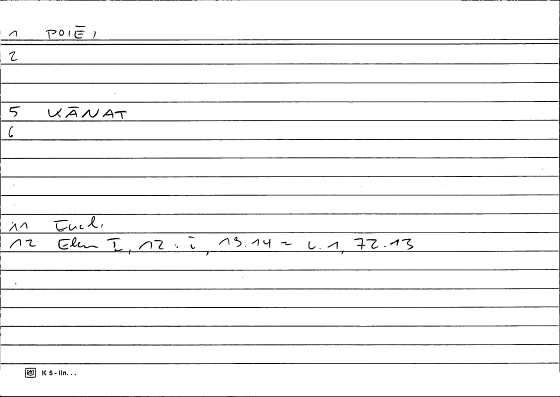 1 POIĒ 1
2
5 KĀNAT
6
11 Eucl.
12 Elem I, 12 : i, 19.14 = i. 1, 72.13
K 5 - lin...